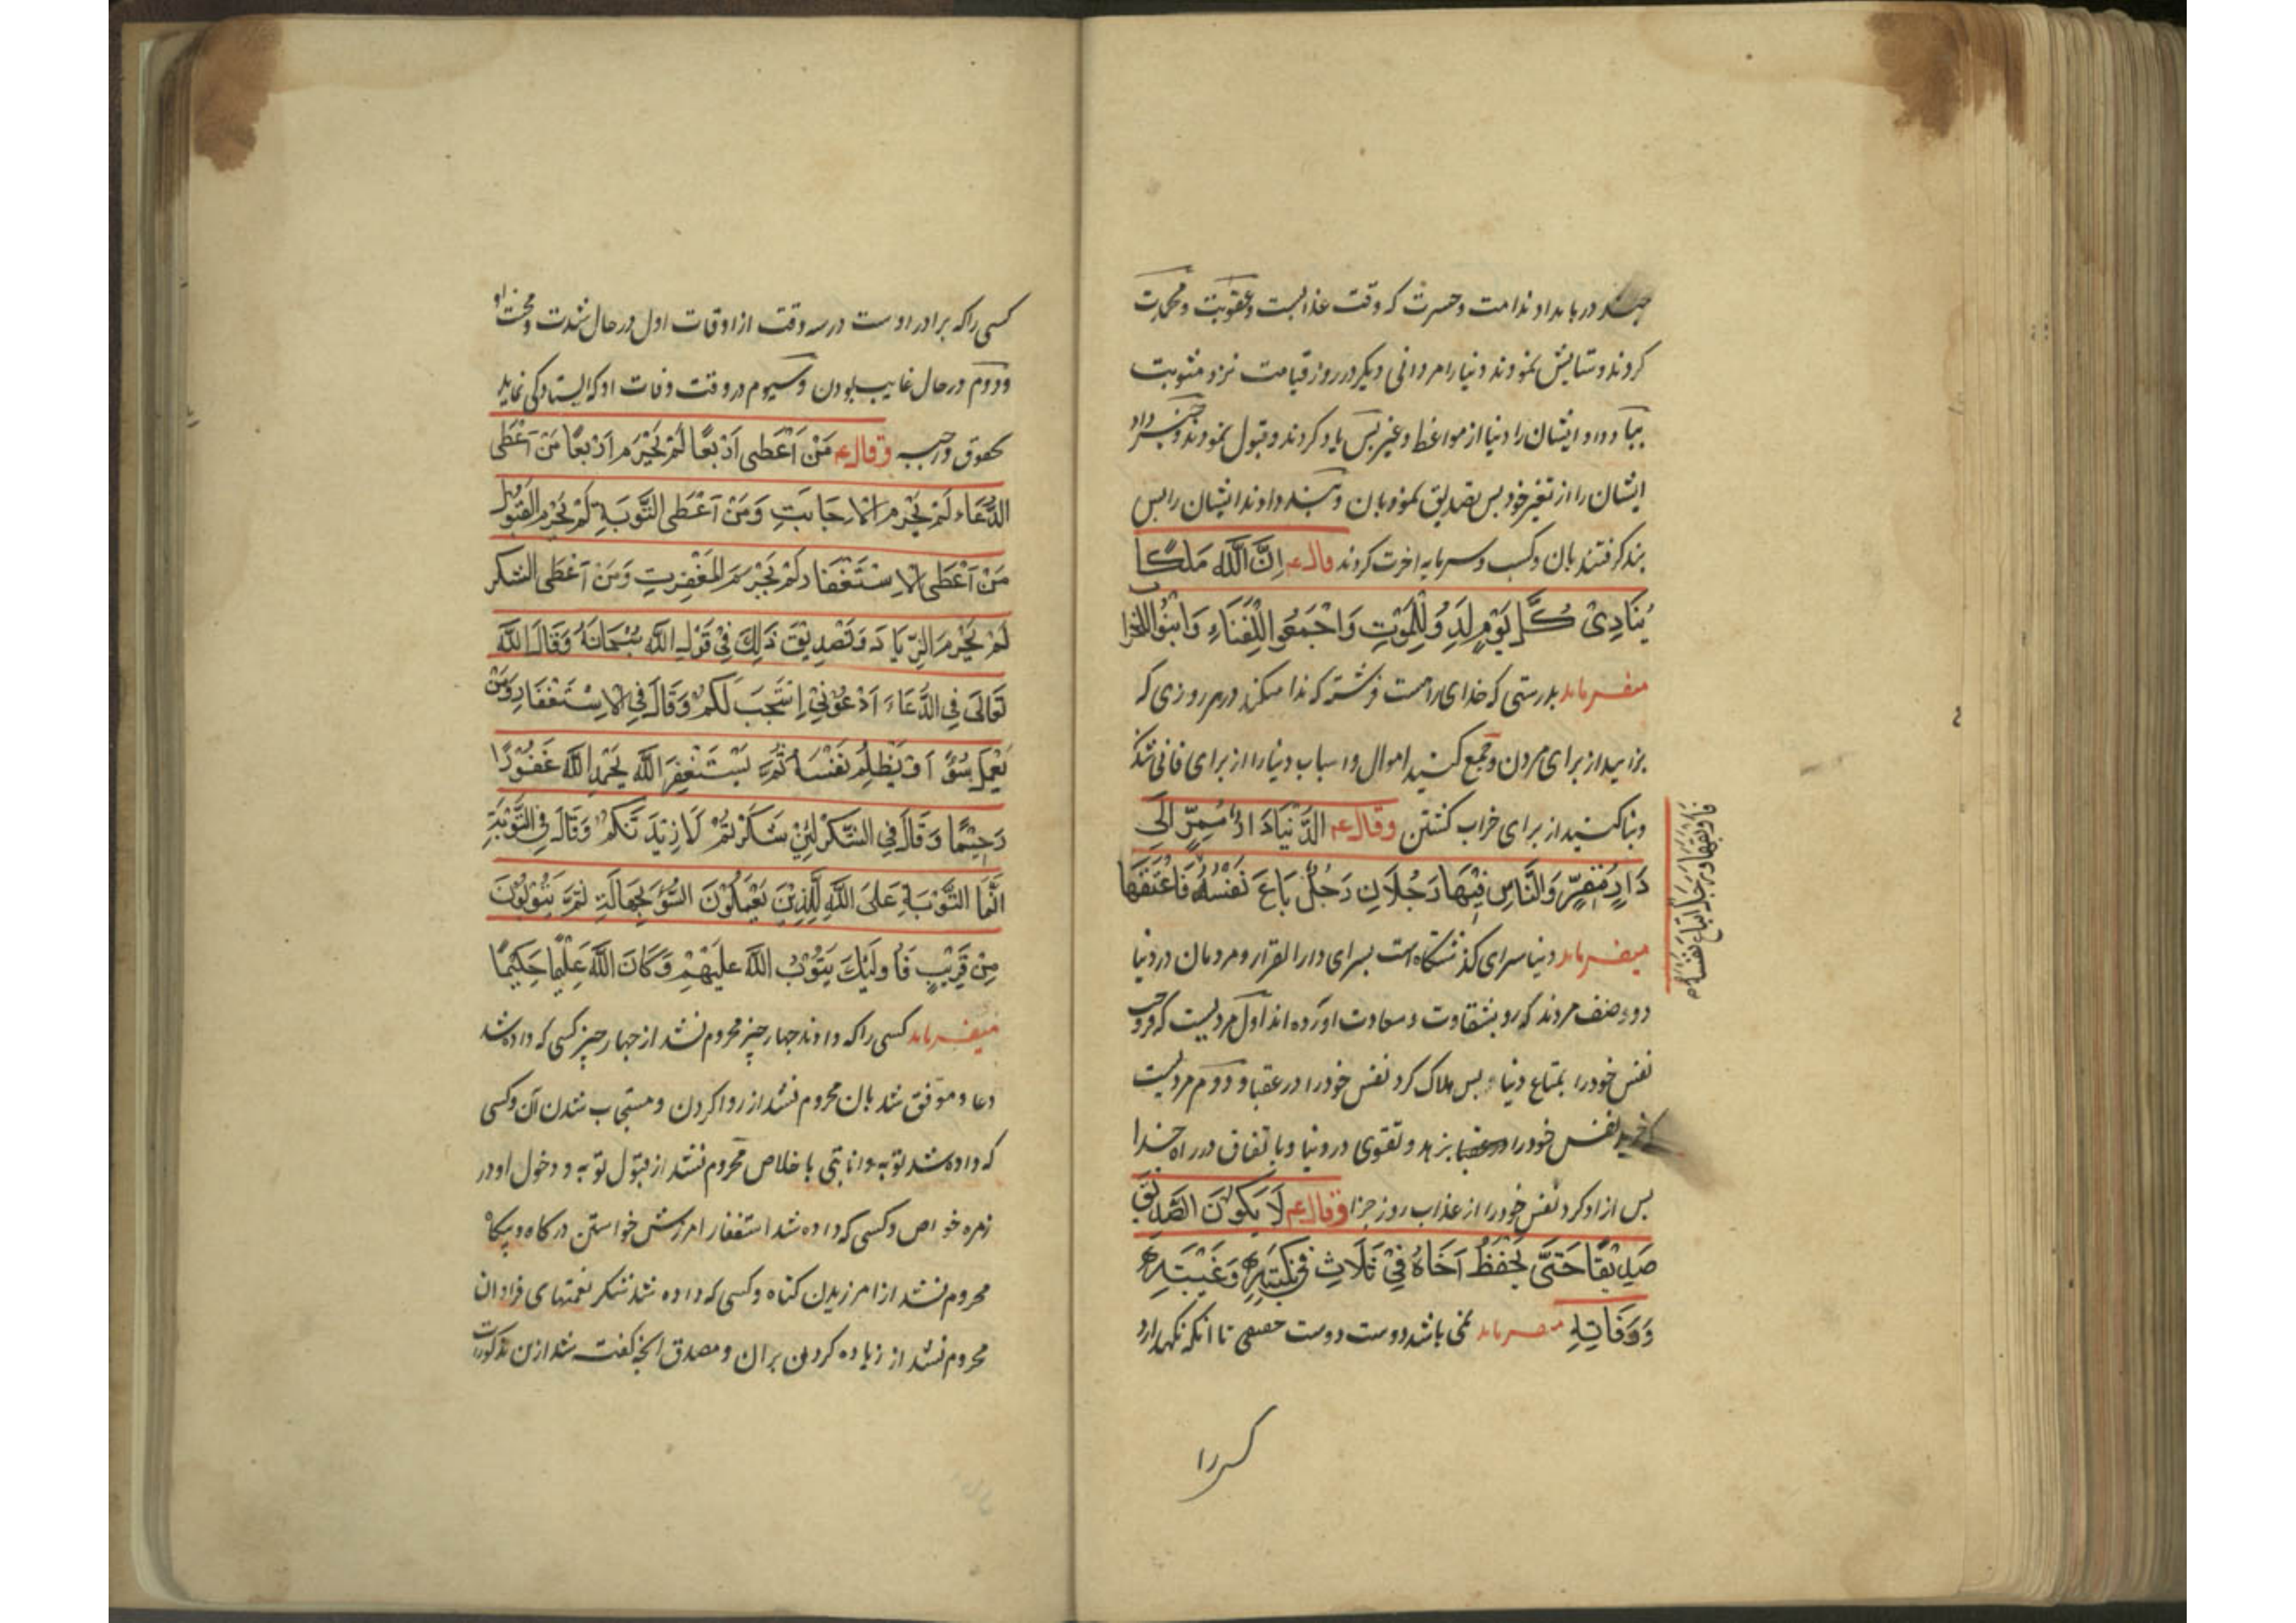 چند در بامداد ندامت و حسرت که وقت عذابست و عقوبت و محمدت
کردند و ستایش نمودند دنیا را مردانی دیکر در روز قیامت نزد مثوبت
بیاد داد ایشان را دنیا از مواعظ و عبر پس یاد کردند و قبول نمودند و خبر داد
ایشان را از تغیر خود پس تصدیق نمودند بان و پند داد ایشان را پس
پند کرفتند بان و کسب و سرمایه اخرت کردند قال ع اِنَّ اللّٰهَ مَلَكًا
یُنَادِیْ كُلَّ یَوْمٍ لِدُوْ لِلْمَوْتِ وَاجْمَعُوا لِلْفَنَاءِ وَابْنُوْا لِلْخَرَا
ب
میفرماید بدرستی که خدای راست فرشته که ندا میکند در هر روزی که
بزایید از برای مردن و جمع کنید اموال و اسباب دنیا را از برای فانی شدن
و بنا کنید از برای خراب کشتن وقال ع الدُّنْیَا دَارُ مَمَرٍّ اِلٰی
دَارِ مَقَرٍّ وَالنَّاسُ فِیْهَا رَجُلَانِ رَجُلٌ بَاعَ نَفْسَهُ فَاعْتَقَهَا
فَاَوْبَقَهَا وَرَجُلٌ ابْتَاعَ نَفْسَهُ
میفرماید دنیا سرای کذشتکاه است بسرای دار القرار و مردمان در دنیا
دو صنف مردند که رو بشقاوت و سعادت اورده اند اول مردیست که فروخت
نفس خود را بمتاع دنیا پس هلاک کرد نفس خود را در عقبا و دوم مردیست
که خرید نفس خود را بزهد و تقوی در دنیا و با تفاق در راه خدا
پس ازاد کرد نفس خود را از عذاب روز جزا وقال ع لَا یَكُوْنُ الصَّدِیْقُ
صَدِیْقًا حَتّٰی یَحْفَظَ اَخَاهُ فِیْ ثَلَاثٍ فِیْ نَكْبَتِهِ وَغَیْبَتِهِ
وَوَفَاتِهِ میفرماید نمی باشد دوست دوست حقیقی تا انکه نکهدارد
کسی را
کسی را که برادر اوست در سه وقت از اوقات اول در حال شدت و محنت او
و دوم در حال غایب بودن و سیوم در وقت وفات او که ایستادکی نماید
بحقوق واجبه وقال ع مَنْ اَعْطٰی اَرْبَعًا لَمْ یُحْرَمْ اَرْبَعًا مَنْ اَعْطٰی
الدُّعَاءَ لَمْ یُحْرَمِ الْاِجَابَتِ وَمَنْ اَعْطٰی التَّوْبَةَ لَمْ یُحْرَمِ الْقَبُوْلَ
مَنْ اَعْطٰی الْاِسْتِغْفَارَ لَمْ یُحْرَمِ الْمَغْفِرَتِ وَمَنْ اَعْطٰی الشُّكْرَ
لَمْ یُحْرَمِ الزِّیَادَةَ وَتَصْدِیْقُ ذٰلِكَ فِیْ قَوْلِ اللّٰهِ سُبْحَانَهُ وَقَالَ اللّٰهُ
تَعَالٰی فِی الدُّعَاءِ اُدْعُوْنِیْ اَسْتَجِبْ لَكُمْ وَقَالَ فِی الْاِسْتِغْفَارِ وَمَنْ
یَعْمَلْ سُوْءً اَوْ یَظْلِمْ نَفْسَهُ ثُمَّ یَسْتَغْفِرِ اللّٰهَ یَجِدِ اللّٰهَ غَفُوْرًا
رَحِیْمًا وَقَالَ فِی الشُّكْرِ لَئِنْ شَكَرْتُمْ لَاَزِیْدَنَّكُمْ وَقَالَ فِی التَّوْبَةِ
اِنَّمَا التَّوْبَةُ عَلَی اللّٰهِ لِلَّذِیْنَ یَعْمَلُوْنَ السُّوْءَ بِجَهَالَةٍ ثُمَّ یَتُوْبُوْنَ
مِنْ قَرِیْبٍ فَاُولٰئِكَ یَتُوْبُ اللّٰهُ عَلَیْهِمْ وَكَانَ اللّٰهُ عَلِیْمًا حَكِیْمًا
میفرماید کسی را که دادند چهار چیز محروم نشد از چهار چیز کسی که داده شد
دعا و موفق شد بان محروم نشد از روا کردن و مستجاب شدن آن و کسی
که داده شد توبه و انابتی با خلاص محروم نشد از قبول توبه و دخول او در
زمره خواص و کسی که داده شد استغفار امرزش خواستن در کاه و بیکاه
محروم نشد از امرزیدن کناه و کسی که داده شد شکر نعمتهای فراوان
محروم نشد از زیاده کردن بران و مصدق انچه کفته شد ازین مذکورات